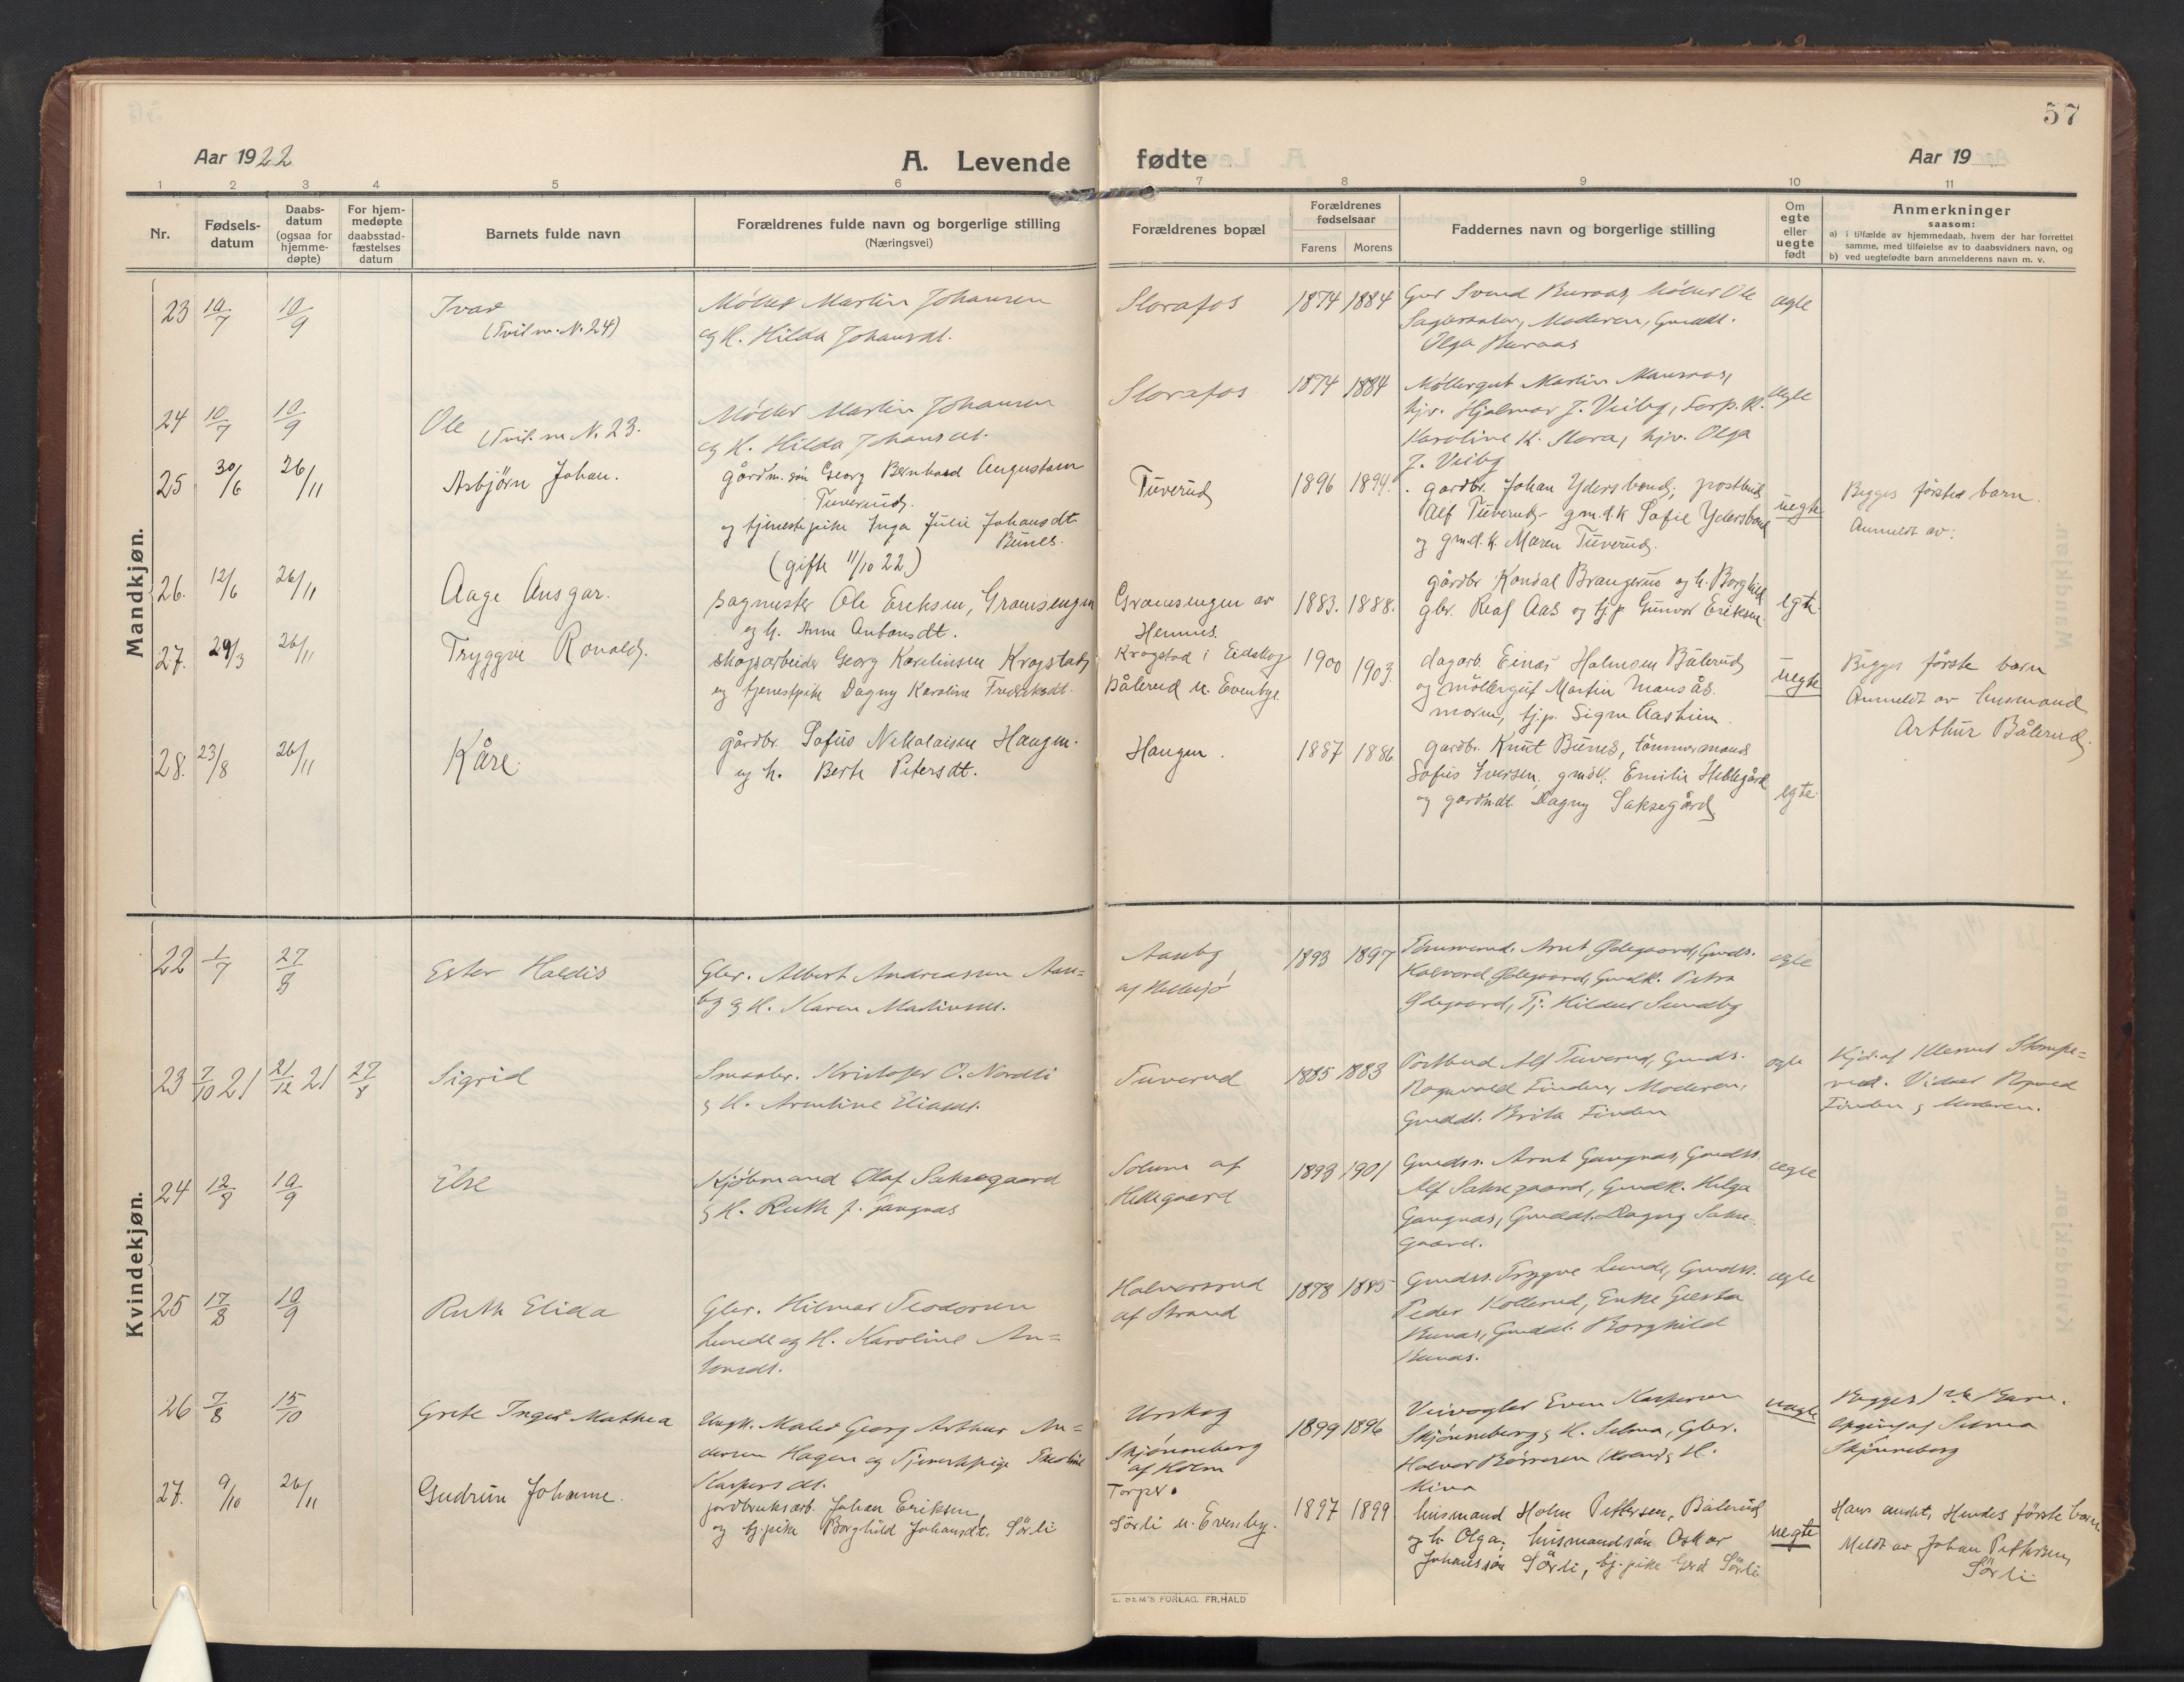 57
Aar 1922
A. Levende fødte
Aar 19
1 2 3 4 5 6 7 8 9 10 11
Nr.
Fødsels-
datum
Daabs-
datum
(ogsaa for
hjemme-
døpte)
For hjem-
medøpte
daabsstad-
fæstelses
datum
Barnets fulde navn
Forældrenes fulde navn og borgerlige stilling
(Næringsvei)
Forældrenes bopæl
Forældrenes
fødselsaar
Farens Morens
Faddernes navn og borgerlige stilling
Om
egte
eller
uegte
født
Anmerkninger
saasom:
a) i tilfælde av hjemmedaab, hvem der har forrettet
samme, med tilføielse av to daabsvidners navn, og
b) ved uegtefødte barn anmelderens navn m. v.
Mandkjøn.
23 10/7 10/9
Ivar
(Tvil. m. N. 24)
Møller Martin Johansen
og H. Hilda Johansdt.
Slorafos
1874 1884
Svend Buraas, Møller Ole
Moderen, Gmddt.
Olga Buraas
ægte
24 10/7 10/9
Ole (Tvil. m N. 23.
Møller Martin Johansen
og H. Hilda Johansdt.
Slorafos
1874 1884
Møllergut Martin
hjv. Hjalmar J. Veiby,
Karoline K. Slora, hjv. Olga
J. Veiby
ægte
25 30/6 26/11
Asbjörn Johan.
gårdm. sön Georg Bernhard Augustsen
Tuverud.
og tjenestepike Inga Julie Johansdt.
Bunes.
(gift 11/10 22)
Tuverud
1896 1894.
gårdbr. Johan Ydersbond, postbud
Alf Tuverud gm.d.k Sofie Ydersbond
og gm.d.k. Maren Tuverud.
uegte
Begges förste barn.
Anmeldt av:
26. 12/6 26/11
Aage Ansgar.
sagmester Ole Eriksen, Gransengen
og h. Anne Antonsdt.
Gransengen av
Hemnes.
1883. 1888.
gårdbr Kondal Brangerud og h. Borghild
gbr. Aas og tj.p Gunvor Eriksen.
egte.
27. 29/3 26/11
Tryggve Ronald.
skogsarbeider Georg Karelinsen Krogstad
og tjenestpike Dagny Karoline Fredriksdt.
Krogstad i Eidskog
Bålerud u. Evenbye
1900 1903.
dagarb. Einar Halvorsen Bålerud
og möllergut Martin Mansås.
moren, tj.p. Signe Aasheim.
uegte
Begges förste barn
Anmeldt av husmand
Arthur Bålerud.
28. 23/8 26/11
Kåre.
gårdbr. Sofus Nikolaisen Haugen.
og h. Berte Petersdt.
Haugen.
1887 1886
gardbr. Knut Bunes, tömmermand
Sofus Iversen, gmdk. Emilie Hellegård
og gårdmdt. Dagny Saksegård
egte.
Kvindekjøn.
22 1/7 27/8
Ester Haldis
Gbr. Albert Andreassen Aan-
by og H. Karen Martinsdt.
Aanby
af Hellesjø
1893 1897
Arnt Ødegaard, Gmds.
Halvard Ødegaard, Gmdk. Petra
Ødegaard, Tj. Hildur Sundby
ægte
23 7/10 21 21/12 21 27/8
Sigrid
Smaabr. Kristofer O. Nordli
og H. Arntine Eliasdt.
Tuverud
1885 1883
Postbud Alf Tuverud, Gmds.
Ragnvald Finden, Moderen,
Gmddt. Brita Finden
ægte
Kjd. af Klemet Stompe-
rud. Vidner Ragnvald
Finden og Moderen.
24 12/8 10/9
Else
Kjøbmand Olaf Saksegaard
og H. Ruth f. Gangnæs
Solum af
Hellegaard
1893 1901
Gmdss. Arnt Gangnæs, Gmdss.
Alf Saksegaard, Gmdk. Helga
Gangnæs, Gmddt. Dagny Sakse-
gaard.
ægte
25 17/8 10/9
Ruth Elida
Gbr. Hilmar Teodorsen
Lunde og H. Karoline An-
tonsdt.
Halvorsrud
af Strand
1878 1885
Gmdss. Trygve Lunde, Gmdss.
Peder Kollerud, Enke Gusta
Bunæs, Gmddt. Borghild
Bunæs.
ægte
26 7/8 15/10
Grete Inger Mathea
Ungk. Maler Georg Arthur An-
dersen Hagen og Tjenestpige Theoline
Kaspersdt.
Urskog
Skjønneberg
af Holm
1899 1896
Veivogter Even Kaspersen
Skjønneberg og H. Selma, Gbr.
Halvor Børresen og H.
Mina
uægte
Begges 1ste Barn.
Opgivet af Selma
Skjønneberg
27. 9/10 26/11
Gudrun Johanne.
jordbruksarb. Johan Eriksen
og tj.pike Borghild Johansdt. Sörli
Torper.
Sörli u. Evenby.
1897 1899
husmand Holm Pettersen, Bålerud
og h. Olga, husmandsön Oskar
Johansen Sörli, tj. pike Gerd Sörli
uegte
Hans andet, Hendes förste barn.
Meldt av Johan Pettersen,
Sörli
E. SEM'S FORLAG. FR.HALD